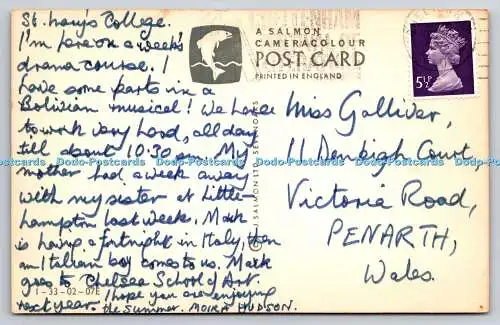 St. Mary's College.
I'm here on a week's
drama course. I
have some parts in a
Bolivian musical! We have
to work very hard, all day
till about 10.30 p.m. My
mother had a week away
with my sister at Little-
hampton last week. Mark
is having a fortnight in Italy, then
an Italian boy comes to us. Mark
goes to Chelsea School of Art
next year. I hope you are enjoying
the summer. MOIRA HUDSON.
1-33-02-07E
A SALMON
CAMERACOLOUR
POST CARD
PRINTED IN ENGLAND
CHELTENHAM
© J. SALMON LTD. SEVENOAKS
5½P
Miss Gulliver,
11 Denbigh Court,
Victoria Road,
PENARTH,
Wales.
Dodo-Postcards Dodo-Postcards Dodo-Postcards Dodo-Postcards Dodo-Postcards